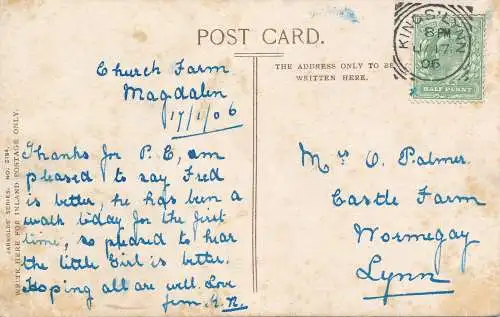 POST CARD.
THE ADDRESS ONLY TO BE
WRITTEN HERE.
KING'S LYNN
8 PM
17
06
HALFPENNY
Church Farm
Magdalen
17/1/06
Thanks for P.C, am
pleased to say Fred
is better, he has been a
walk today for the first
time, so pleased to hear
the little Girl is better.
Hoping all are well. Love
from A.R.
Mrs O. Palmer
Castle Farm
Wormegay
Lynn
"ARNOLDS' SERIES. NO. 2194.
WRITE HERE FOR INLAND POSTAGE ONLY.